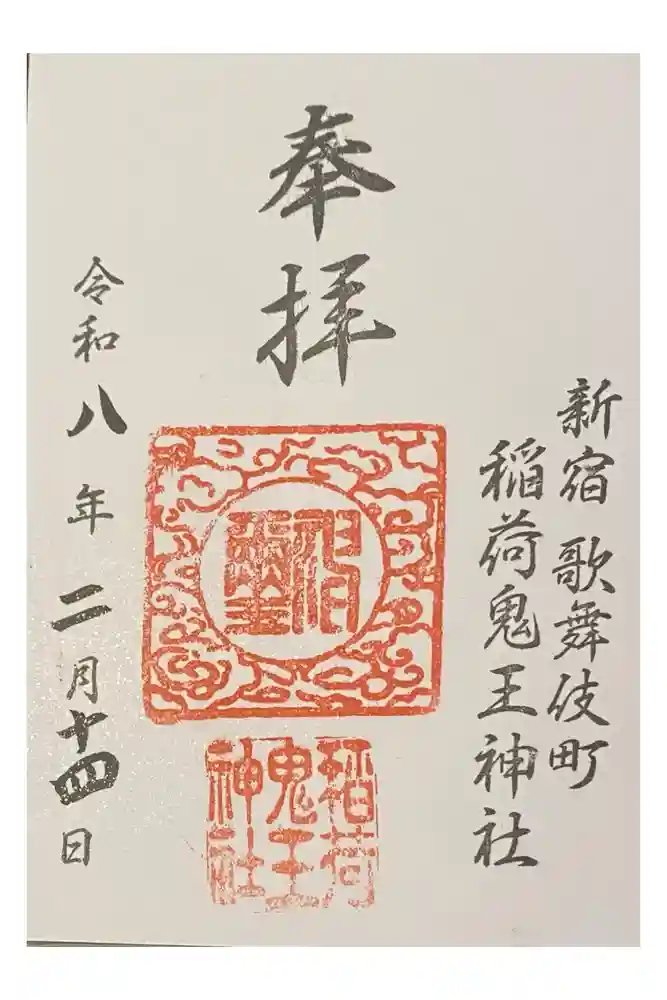 奉拝
新宿 歌舞伎町
稲荷鬼王神社
稲荷
鬼王
神社
令和八年二月十四日